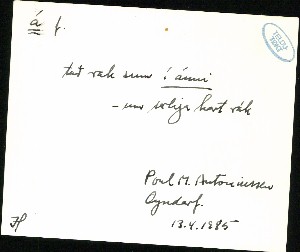 á f.
tað rak sum í ánni
- um sølija hart rák
Poul M. Antoniussen
Gyndarf.
13.4.1985